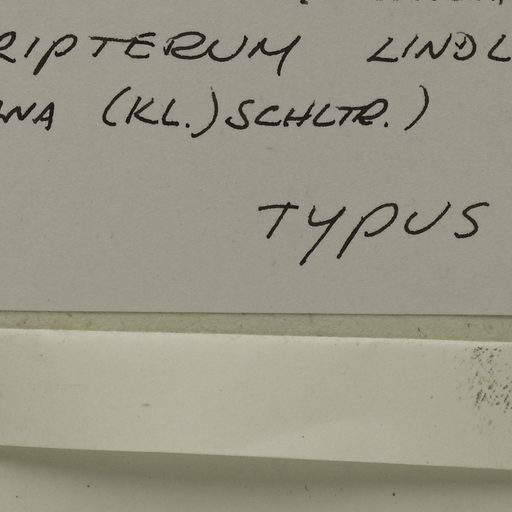 RIPTERUM LINDL
NA (KL.) SCHLTR.)
TYPUS